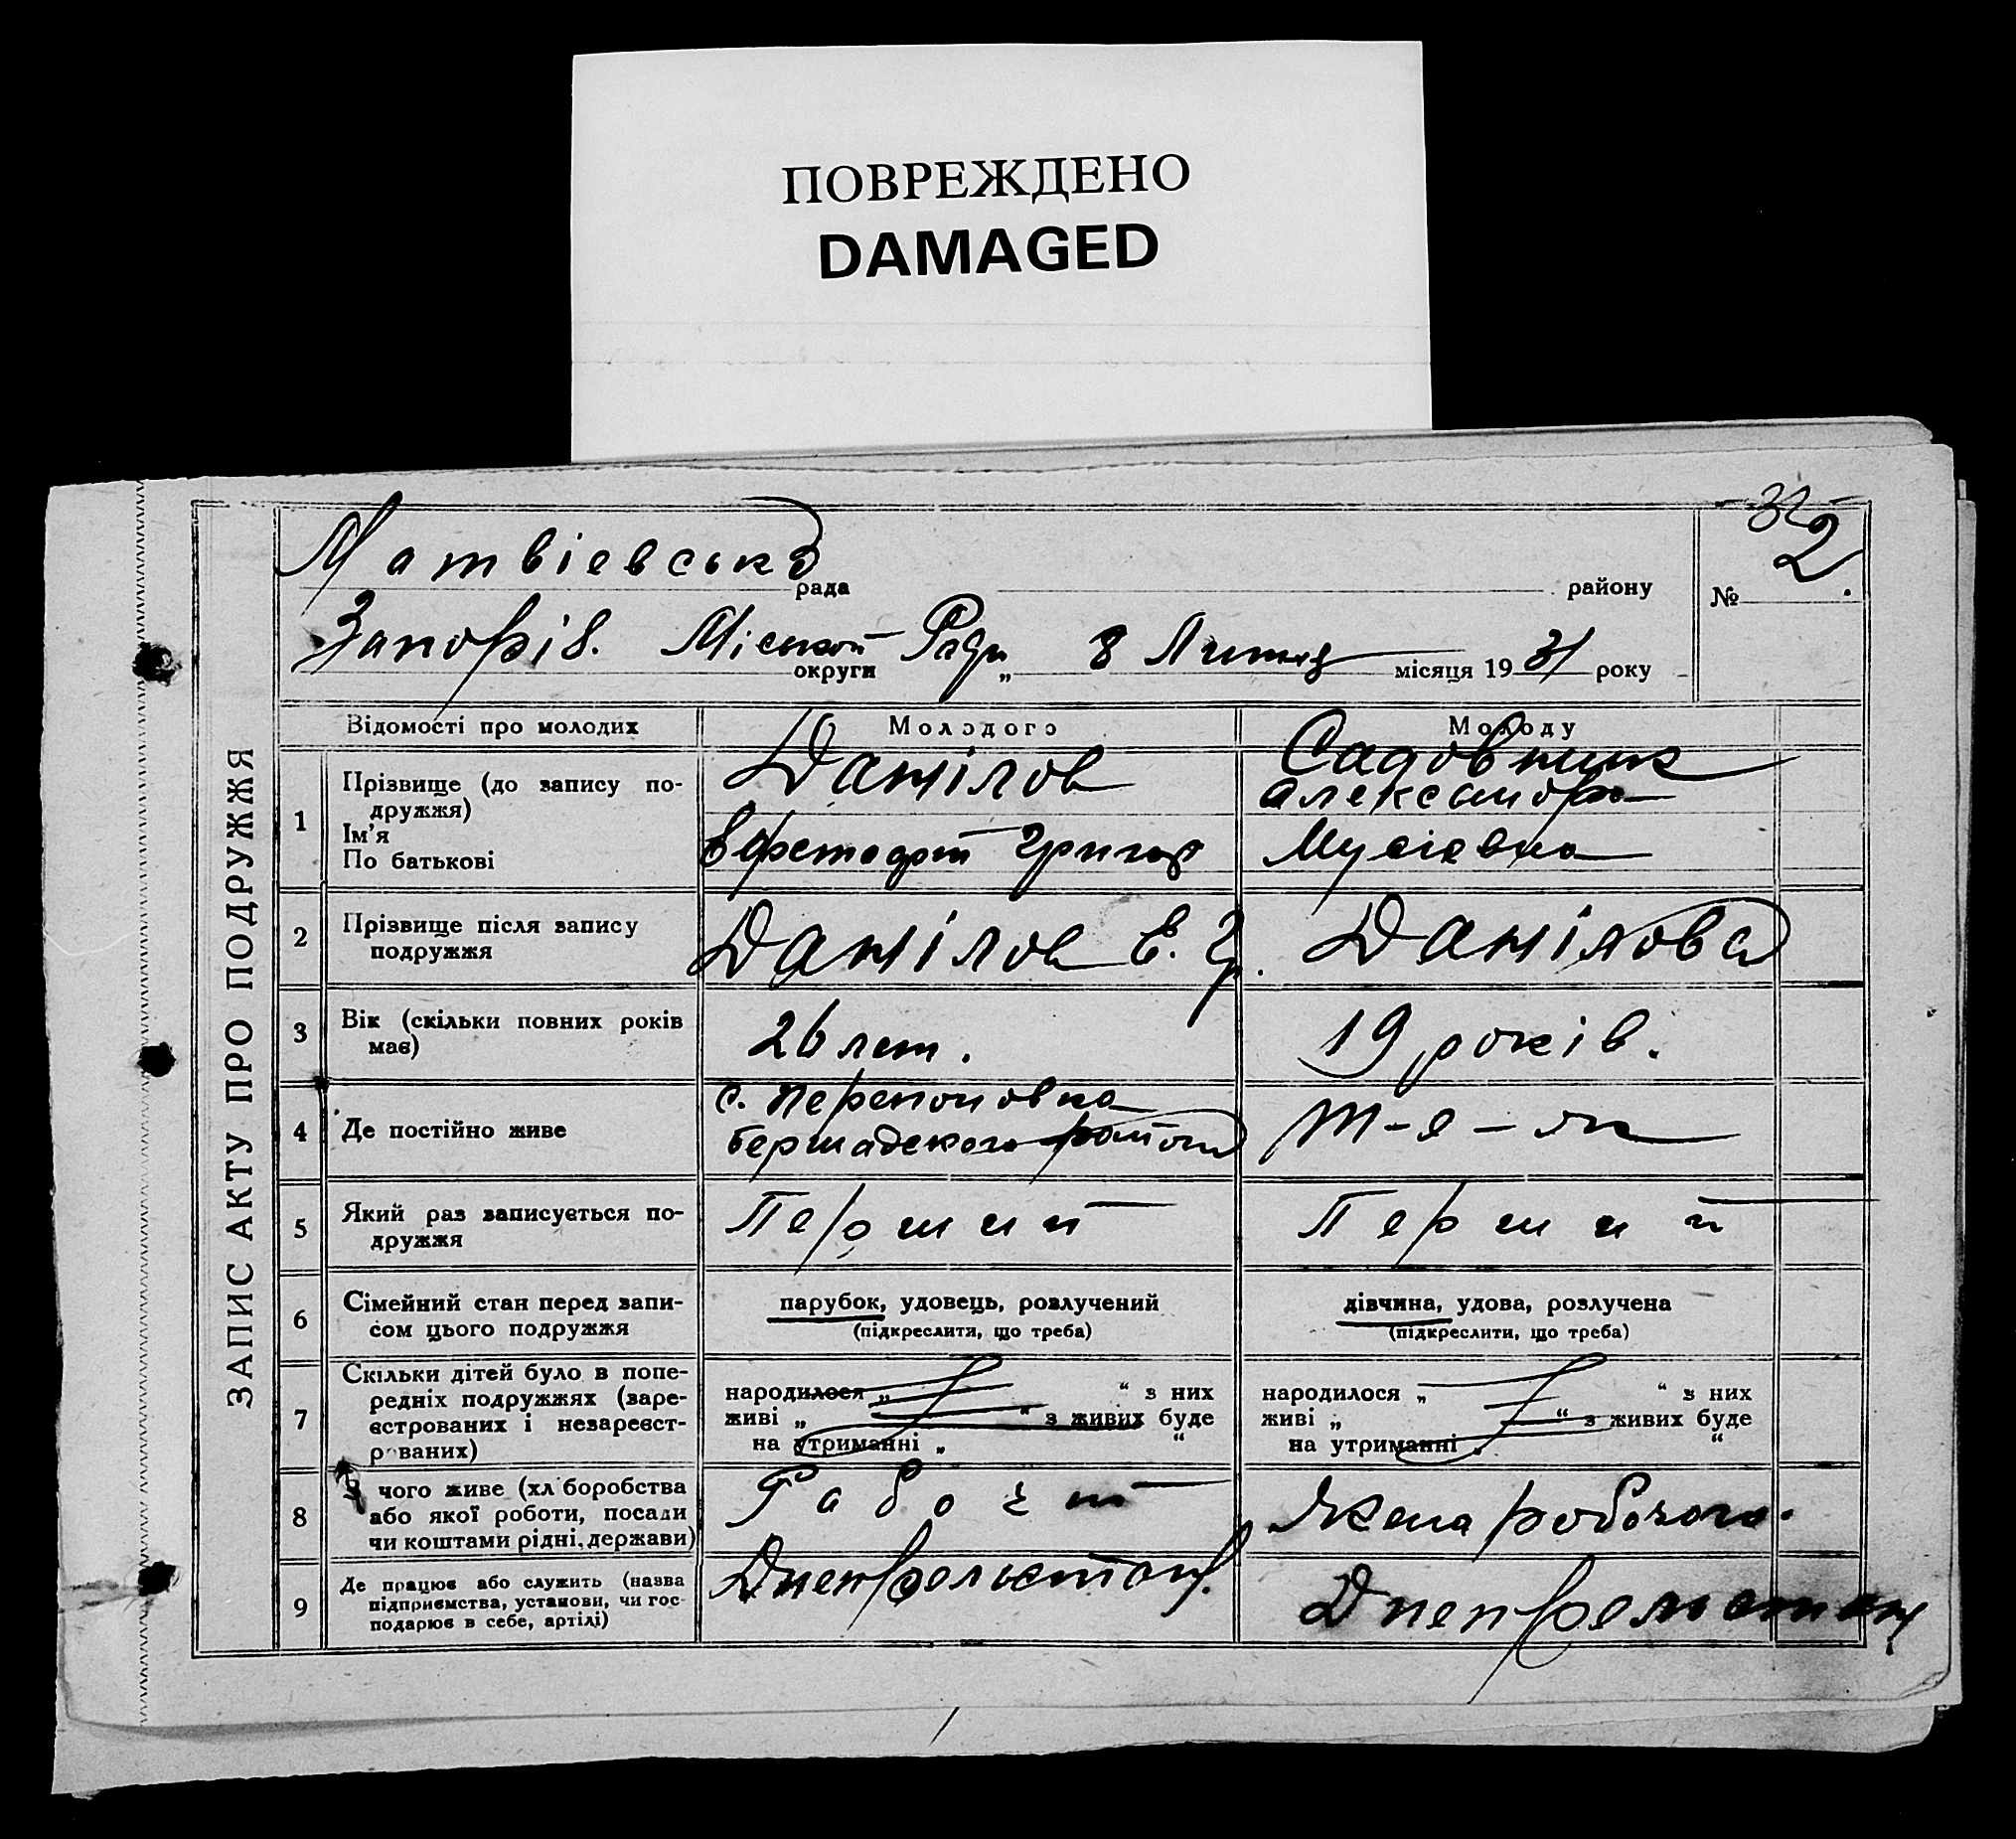 ПОВРЕЖДЕНО
DAMAGED
ЗАПИС АКТУ ПРО ПОДРУЖЖЯ
Матвіевська рада району
№ 32 2.
Запоріз. Міської Ради округи „ 8 Лютня місяця 1931 року
Відомості про молодих Молодого Молоду
1 Прізвище (до запису подружжя) Данілов Садовник
Ім'я Александра
По батькові Григор Мусіевна
2 Прізвище після запису подружжя Данілов Е. Гр. Данілова
3 Вік (скільки повних років має) 26 лет. 19 років.
4 Де постійно живе с. бершадского района т-е-як
5 Який раз записується подружжя Перший Перший
6 Сімейний стан перед записом цього подружжя парубок, удовець, розлучений дівчина, удова, розлучена
(підкреслити, що треба) (підкреслити, що треба)
7 Скільки дітей було в попередніх подружжях (зареєстрованих і незареєстрованих)
народилося „ “ з них народилося „ “ з них
живі „ “ з живих буде живі „ “ з живих буде
на утриманні „ “ на утриманні „ “
8 З чого живе (хліборобства або якої роботи, посади чи коштами рідні, держави) Рабочий Жена робочого.
9 Де працює або служить (назва підприємства, установи, чи господарює в себе, артілі)